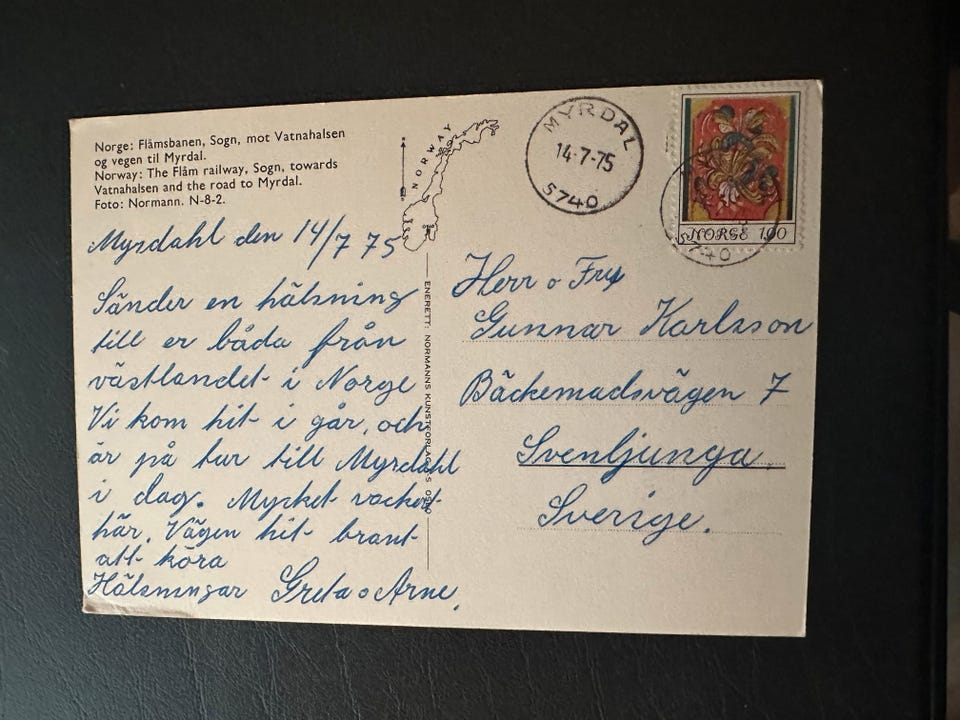 Norge: Flåmsbanen, Sogn, mot Vatnahalsen
og vegen til Myrdal.
Norway: The Flåm railway, Sogn, towards
Vatnahalsen and the road to Myrdal.
Foto: Normann. N-8-2.
Myrdahl den 14/7 75
Sänder en hälsning
till er båda från
västlandet i Norge
Vi kom hit i går, och
är på tur till Myrdahl
i dag. Mycket vackert
här. Vägen hit brant
att köra
Hälsningar Greta o Arne.
NORWAY
ENERETT: NORMANNS KUNSTFORLAG A/S OSLO
MYRDAL
14-7-75
5740
NORGE 1,00
5740
Herr o Fru
Gunnar Karlsson
Bäckemadsvägen 7
Svenljunga.
Sverige.